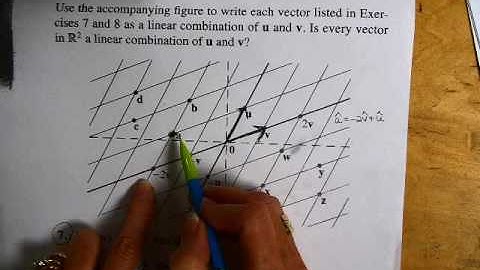 Use the accompanying figure to write each vector listed in Exer-
cises 7 and 8 as a linear combination of u and v. Is every vector
in ℝ² a linear combination of u and v?
d
b
u
c
2v
â = -2v̂ + û
v
0
w
-v
y
-2v
-u
x
z
7.